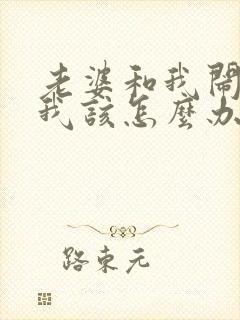 老婆和我鬧
我該怎麼办
路東元